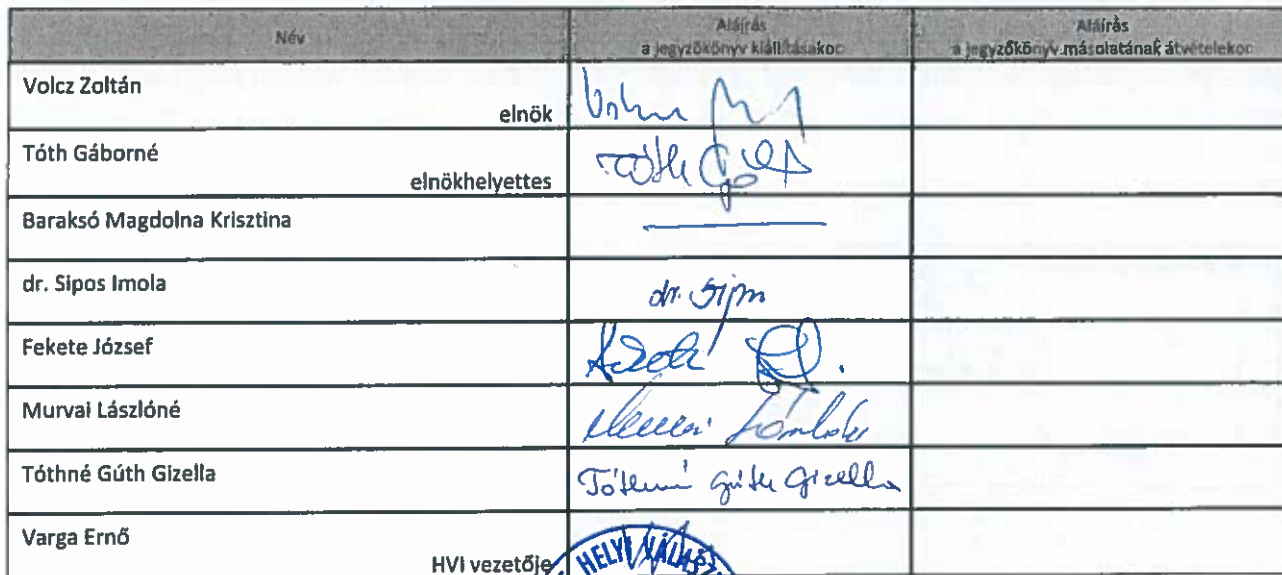 Név
Aláírás
a jegyzőkönyv kiállításakor
Aláírás
a jegyzőkönyv másolatának átvételekor
Volcz Zoltán
elnök
Tóth Gáborné
elnökhelyettes
Tóth
Baraksó Magdolna Krisztina
dr. Sipos Imola
dr. Sipos
Fekete József
Murvai Lászlóné
Tóthné Gúth Gizella
Tóthné Gúth Gizella
Varga Ernő
HVI vezetője
HELYI VÁLASZ